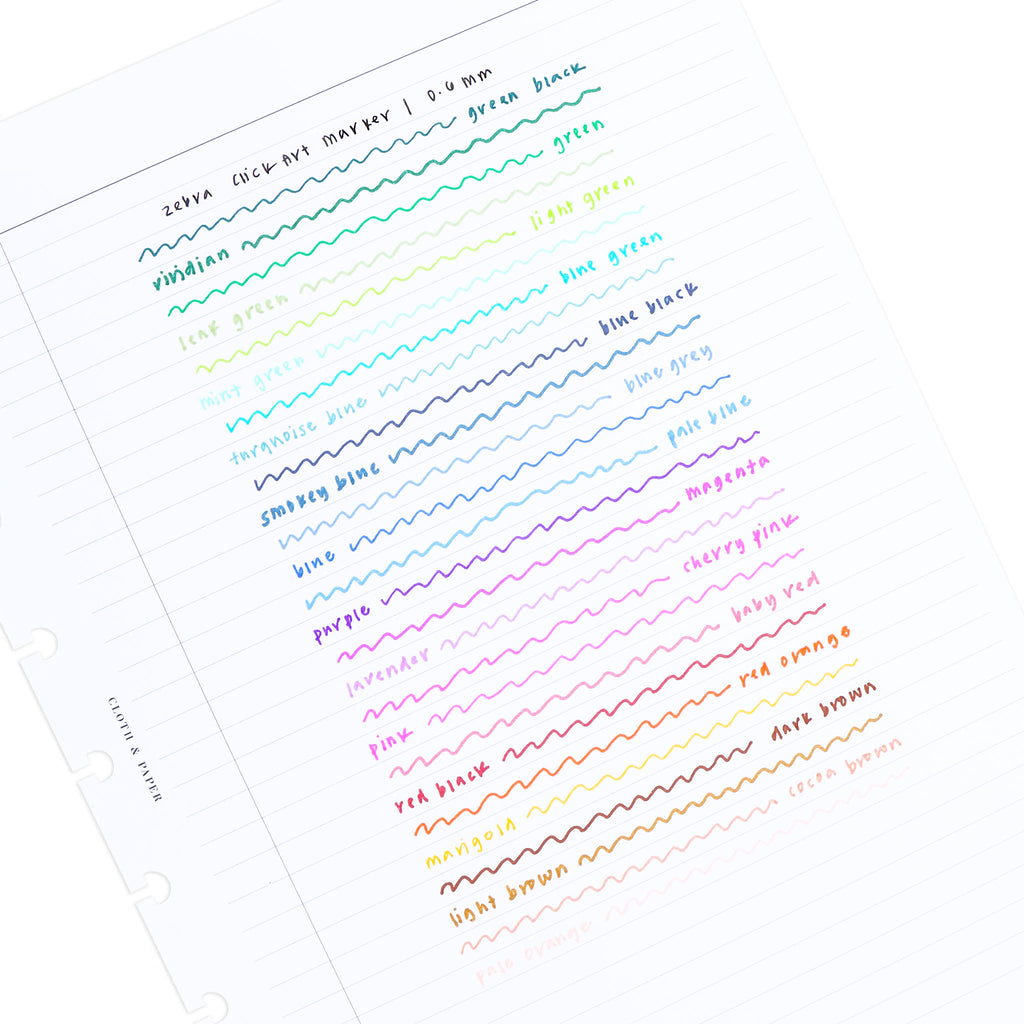 zebra ClickArt marker | 0.6 mm
green black
viridian
green
leaf green
light green
mint green
blue green
turquoise blue
blue black
smokey blue
blue grey
blue
pale blue
purple
magenta
lavender
cherry pink
pink
baby red
red black
red orange
marigold
dark brown
light brown
cocoa brown
pale orange
CLOTH & PAPER